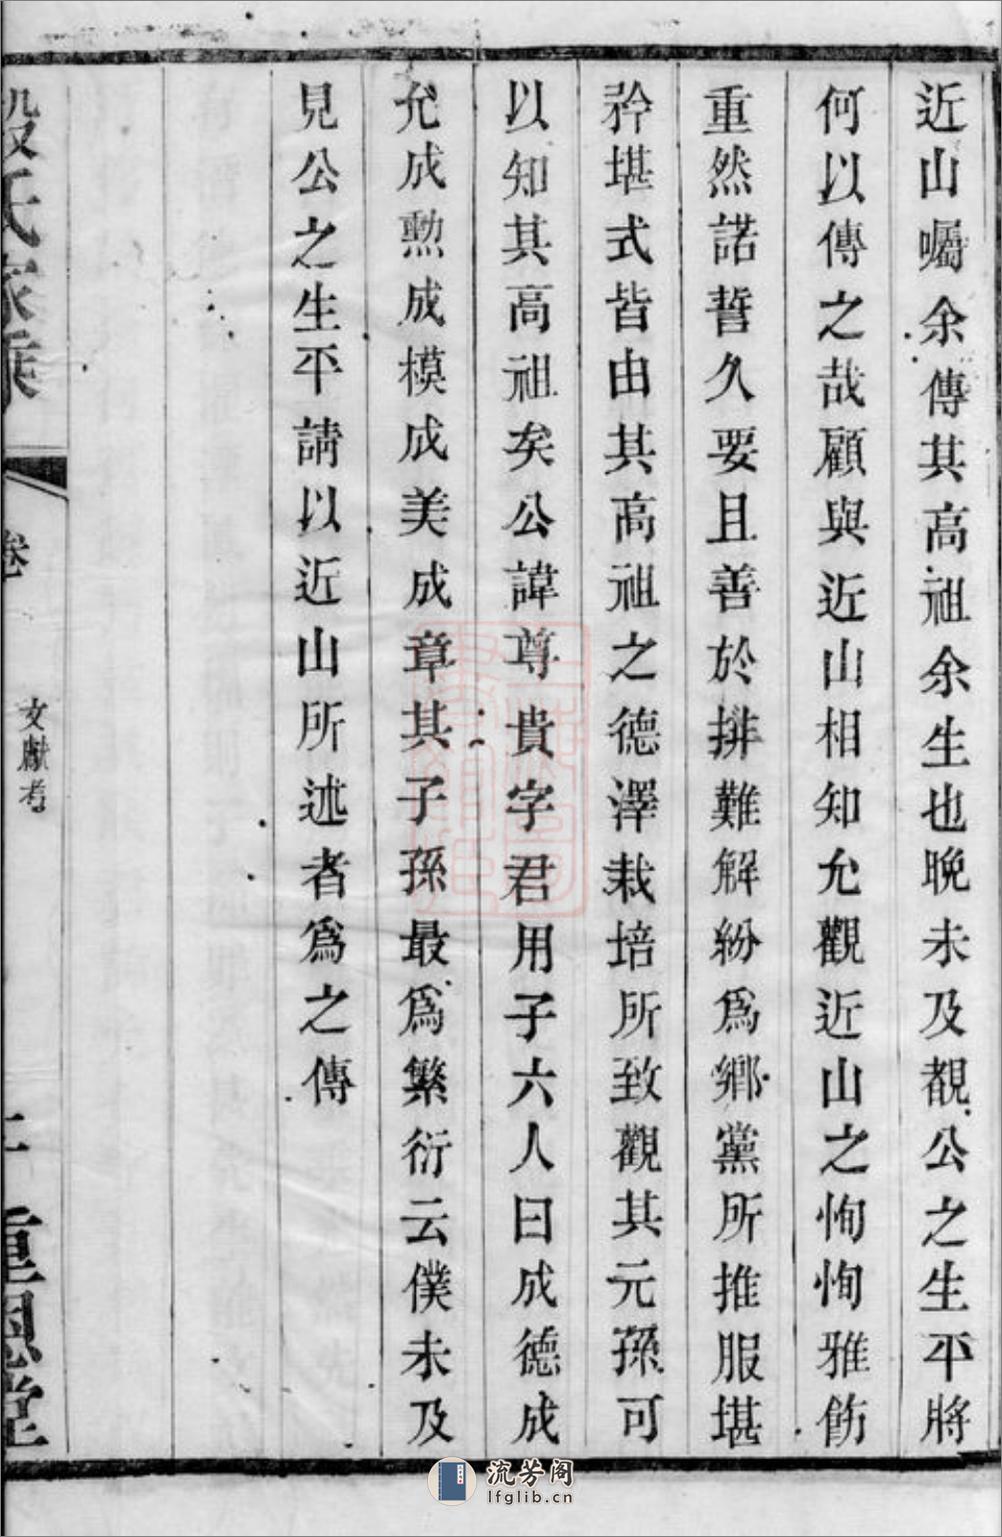 近山囑余傳其高祖余生也晚未及覩公之生平將
何以傳之哉顧與近山相知允觀近山之恂恂雅飭
重然諾誓久要且善於排難解紛爲鄉黨所推服堪
矜堪式皆由其高祖之德澤栽培所致觀其元孫可
以知其高祖矣公諱尊貴字君用子六人曰成德成
允成勲成模成美成章其子孫最爲繁衍云僕未及
見公之生平請以近山所述者爲之傳
殷氏家乘
卷
文獻考
二
重恩堂
流芳阁
lfglib.cn